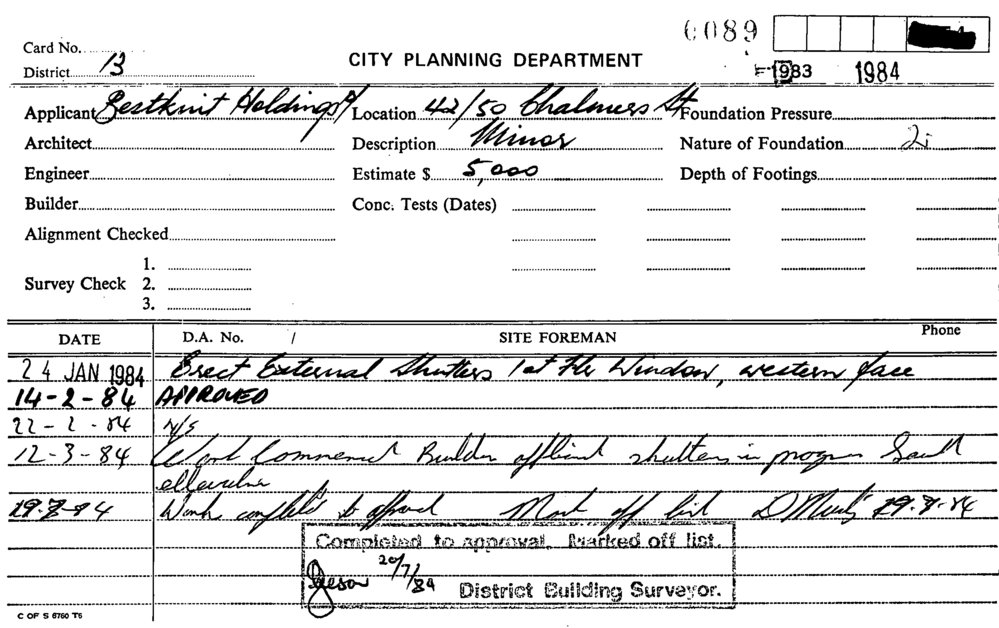 0089
Card No.
CITY PLANNING DEPARTMENT
District 13
1983 1984
Applicant Bestknit Holdings P/ Location 42/50 Chalmers St Foundation Pressure
Architect Description Minor Nature of Foundation 2i
Engineer Estimate $ 5,000 Depth of Footings
Builder Conc. Tests (Dates)
Alignment Checked
1.
Survey Check 2.
3.
DATE D.A. No. / SITE FOREMAN Phone
24 JAN 1984 Erect External Shutters 1st Flr Window, western face
14-2-84 APPROVED
22-2-84 N/S
12-3-84 Work Commenced Builder shutters in progress South
Work to Mark off list
Completed to approval. Marked off list.
20/7/84
District Building Surveyor.
C OF S 6760 T5